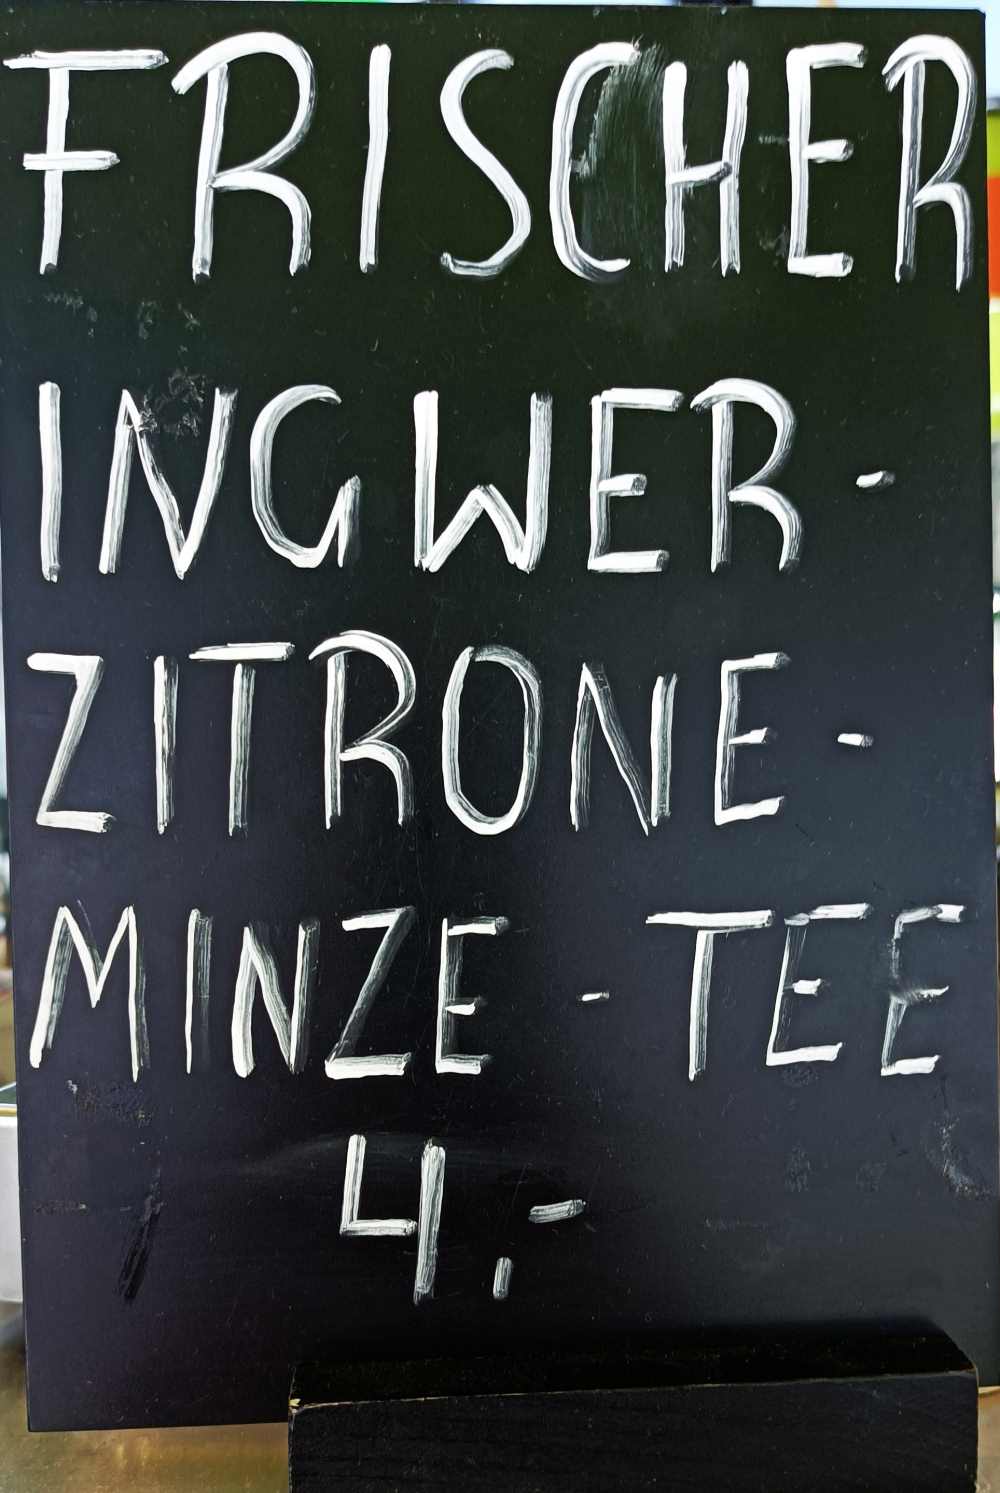 FRISCHER
INGWER -
ZITRONE -
MINZE - TEE
4,-